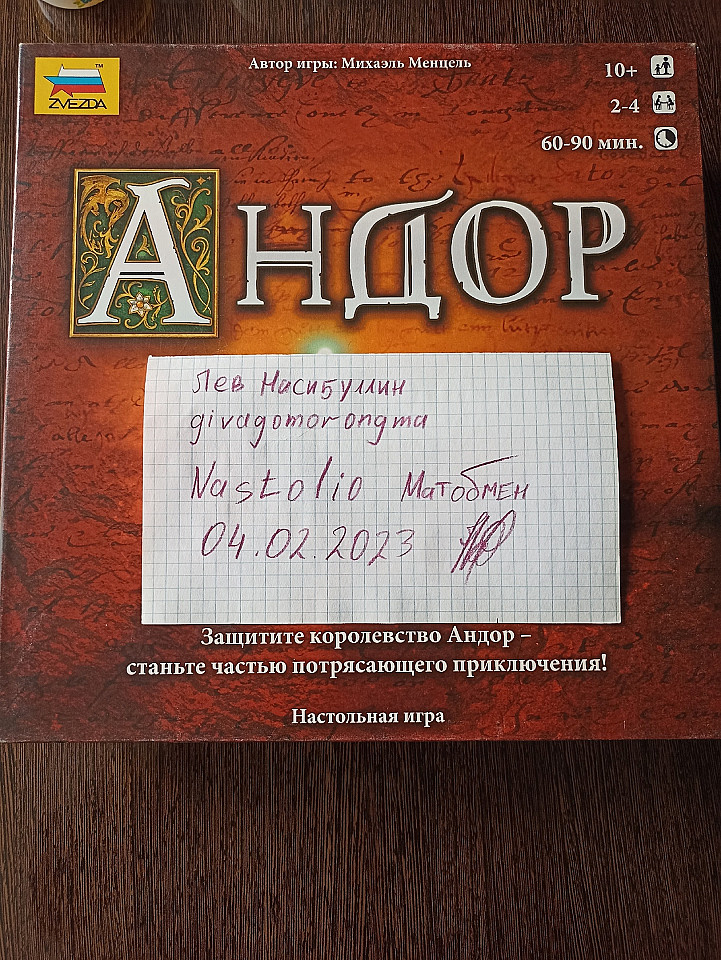 Автор игры: Михаэль Менцель
ZVEZDA™
10+
2-4
60-90 мин.
АНДОР
Лев Насибуллин
givagomorongma
Nastolio Матобмен
04.02.2023
Защитите королевство Андор –
станьте частью потрясающего приключения!
Настольная игра